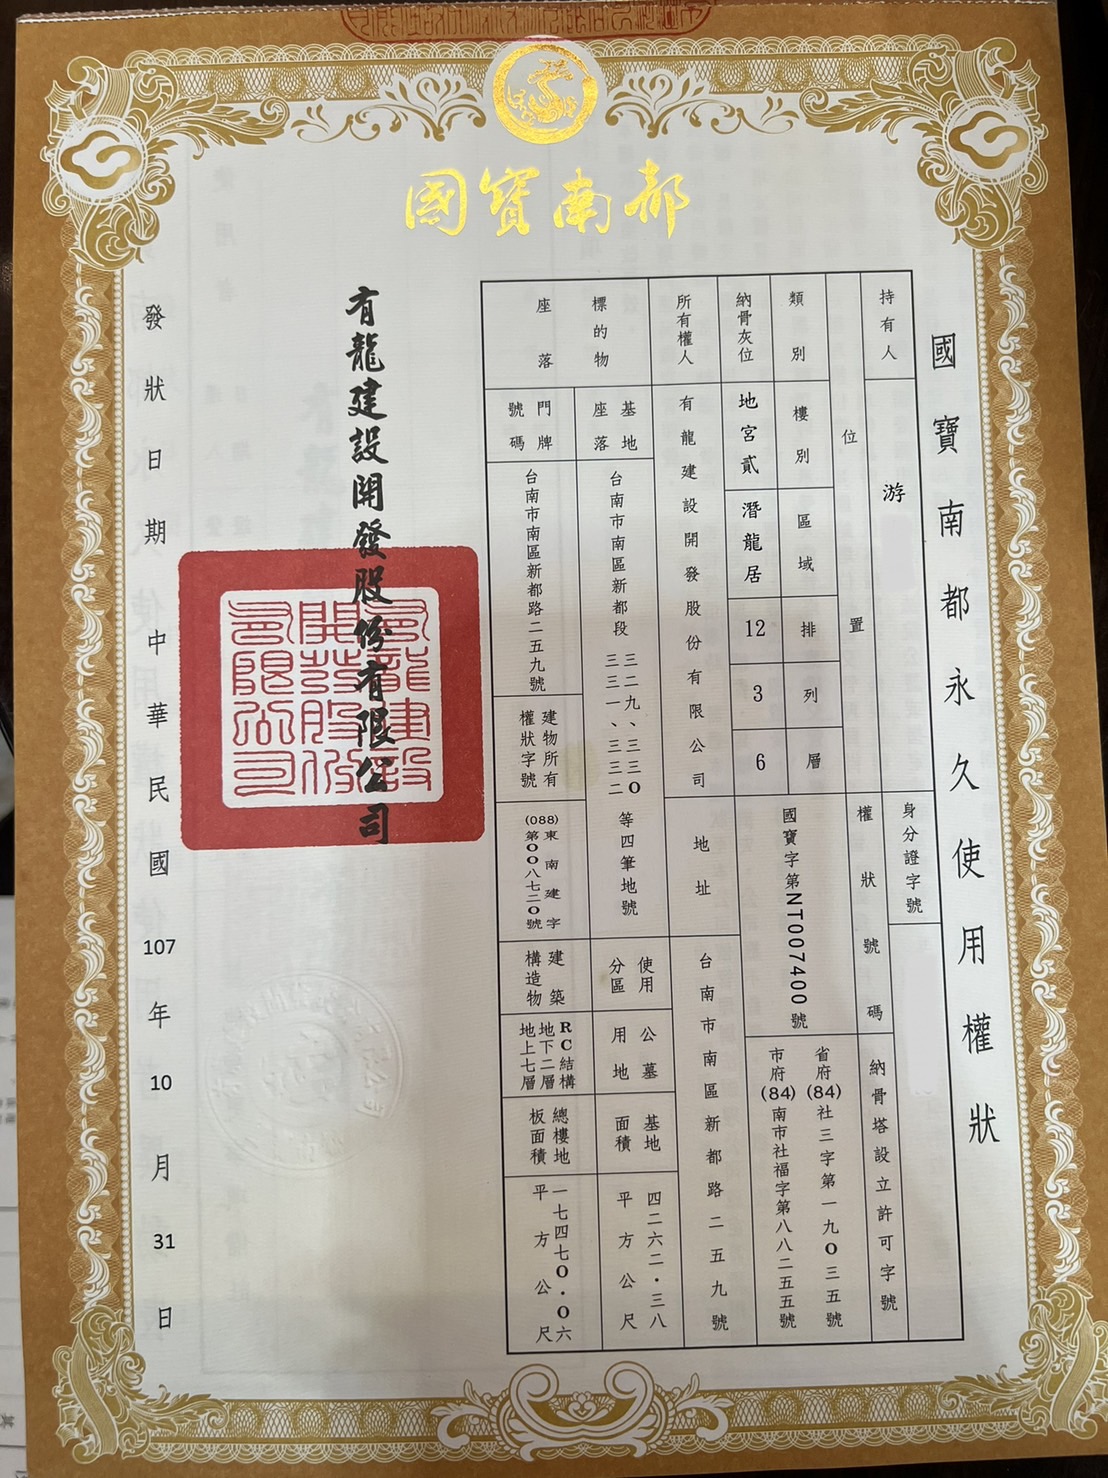 國寶南都
國寶南都永久使用權狀
持有人
游
身分證字號
位置
權狀號碼
納骨塔設立許可字號
類別
樓別
區域
排
列
層
國寶字第NT007400號
省府(84)社三字第一九0三五號
市府(84)南市社福字第八八二五五號
納骨灰位
地宮貳
潛龍居
12
3
6
所有權人
有龍建設開發股份有限公司
地址
台南市南區新都路二五九號
標的物
座落
基地
座落
台南市南區新都段
三二九、三三0
三三一、三三二
等四筆地號
使用
分區
公墓
用地
基地
面積
四二六二・三八
平方公尺
門牌
號碼
台南市南區新都路二五九號
建物所有
權狀字號
(088)東南建字
第00八七二0號
建築
構造物
RC結構
地下二層
地上七層
總樓地
板面積
一七四七0・0六
平方公尺
有龍建設開發股份有限公司
有龍建設
開發股份
有限公司
發狀日期 中華民國107年10月31日